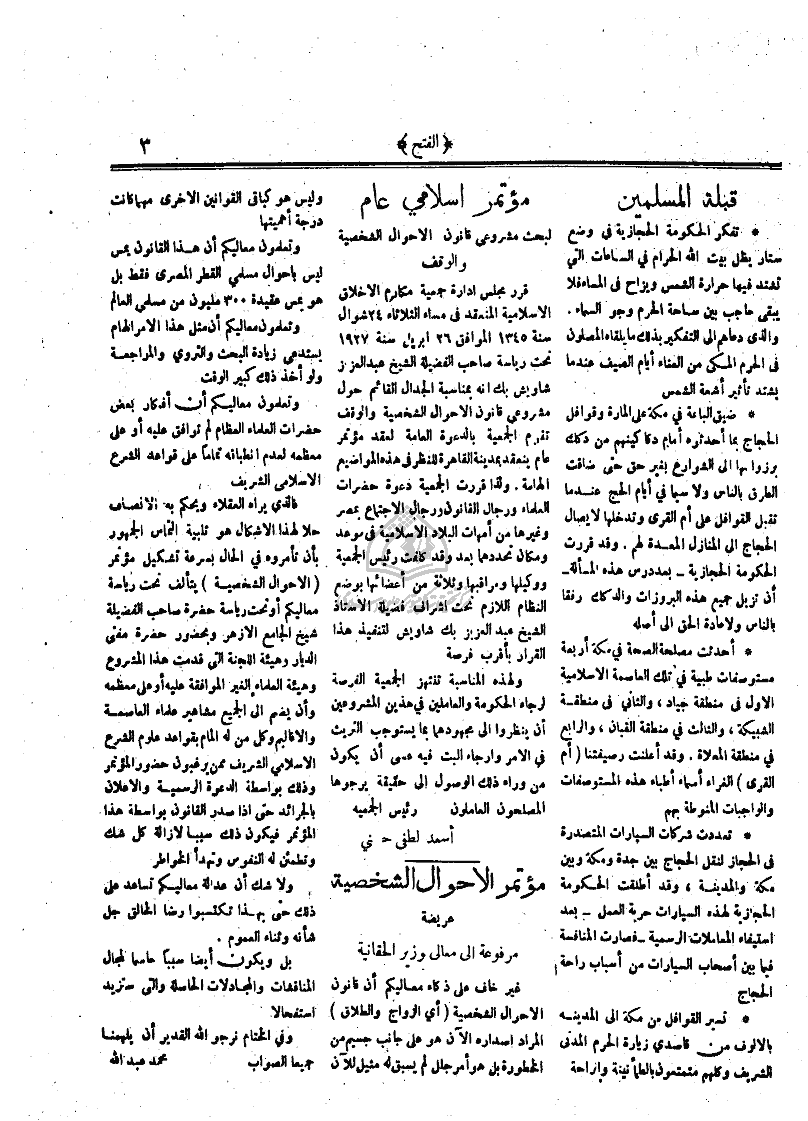 ﴿ الفتح ﴾
٣
قبلة المسلمين
* تفكر الحكومة الحجازية في وضع
ستار يظل بيت الله الحرام في الساعات التي
تشتد فيها حرارة الشمس ويزاح في المساء فلا
يبقى حاجب بين ساحة الحرم وجو السماء .
والذى دعاهم الى التفكير بذلك ما يلقاه المصلون
في الحرم المكى من العناء أيام الصيف عندما
يشتد تأثير أشعة الشمس
* ضيق الباعة في مكة على المارة وقوافل
الحجاج بما أحدثوه أمام دكاكينهم من دكاك
برزوا بها الى الشوارع بغير حق حتى ضاقت
الطرق بالناس ولا سيما في أيام الحج عندما
تقبل القوافل على أم القرى وتدخلها لايصال
الحجاج الى المنازل المعدة لهم . وقد قررت
الحكومة الحجازية ــ بعد درس هذه المسألة ــ
أن تزيل جميع هذه البروزات والدكاك رفقا
بالناس ولاعادة الحق الى أصله
* أحدثت مصلحة الصحة في مكة أربعة
مستوصفات طبية في تلك العاصمة الاسلامية
الاول في منطقة جياد ، والثاني في منطقة
الشبيكة ، والثالث في منطقة القبان ، والرابع
في منطقة المعلاة . وقد أعلنت رصيفتنا ( أم
القرى ) الغراء أسماء أطباء هذه المستوصفات
والواجبات المنوطة بهم
* تعددت شركات السيارات المتصدرة
في الحجاز لنقل الحجاج بين جدة ومكة وبين
مكة والمدينة ، وقد أطلقت الحكومة
الحجازية لهذه السيارات حرية العمل ــ بعد
استيفاء المعاملات الرسمية ــ فصارت المنافسة
فيما بين أصحاب السيارات من أسباب راحة
الحجاج
* تسير القوافل من مكة الى المدينه
بالالوف من قاصدي زيارة الحرم المدنى
الشريف وكلهم متمتعون بالطمأنينة والراحة
مؤتمر اسلامي عام
لبحث مشروعي قانون الاحوال الشخصية
والوقف
قرر مجلس ادارة جمعية مكارم الاخلاق
الاسلامية المنعقد في مساء الثلاثاء ٢٤ شوال
سنة ١٣٤٥ الموافق ٢٦ ابريل سنة ١٩٢٧
تحت رياسة صاحب الفضيلة الشيخ عبدالعزيز
شاويش بك انه بمناسبة الجدال القائم حول
مشروعي قانون الاحوال الشخصية والوقف
تقوم الجمعية بالدعوة العامة لعقد مؤتمر
عام ينعقد بمدينة القاهرة للنظر في هذه المواضيع
الهامة . ولذا قررت الجمعية دعوة حضرات
العلماء ورجال القانون ورجال الاجتماع بمصر
وغيرها من أمهات البلاد الاسلامية في موعد
ومكان تحددهما بعد وقد كلفت رئيس الجمعية
ووكيلها ومراقبها وثلاثة من أعضائها بوضع
النظام اللازم تحت اشراف فضيلة الاستاذ
الشيخ عبد العزيز بك شاويش لتنفيذ هذا
القرار بأقرب فرصة
ولهذه المناسبة تنتهز الجمعية الفرصة
لرجاء الحكومة والعاملين في هذين المشروعين
أن ينظروا الى مجهودها بما يستوجب التريث
في الامر وارجاء البت فيه عسى أن يكون
من وراء ذلك الوصول إلى حقيقة يرجوها
المصلحون العاملون رئيس الجمعيه
أسعد لطفى حسني
مؤتمر الاحوال الشخصية
عريضة
مرفوعة الى معالى وزير الحقانية
غير خاف على ذكاء معاليكم أن قانون
الاحوال الشخصية ( أي الزواج والطلاق )
المراد اصداره الآن هو على جانب جسيم من
الخطورة بل هو أمر جلل لم يسبق له مثيل للآن
وليس هو كباقى القوانين الاخرى مهما كانت
درجة أهميتها
وتعلمون معاليكم أن هذا القانون يمس
ليس باحوال مسلمي القطر المصرى فقط بل
هو يمس عقيدة ٣٠٠ مليون من مسلمي العالم
وتعلمون معاليكم أن مثل هذا الامر الهام
يستدعي زيادة البحث والتروي والمراجعة
ولو أخذ ذلك كبير الوقت
وتعلمون معاليكم أن أفكار بعض
حضرات العلماء العظام لم توافق عليه أو على
معظمه لعدم انطباقه تماما على قواعد الشرع
الاسلامى الشريف
فالذي يراه العقلاء ويحكم به الانصاف
حلا لهذا الاشكال هو تلبية التماس الجمهور
بأن تأمروه في الحال بسرعة تشكيل مؤتمر
( الاحوال الشخصية ) يتألف تحت رياسة
معاليكم أو تحت رياسة حضرة صاحب الفضيلة
شيخ الجامع الازهر وبحضور حضرة مفتي
الديار وهيئة اللجنة التي قدمت هذا المشروع
وهيئة العلماء الغير الموافقة عليه أو على معظمه
وأن يضم الى الجميع مشاهير علماء العاصمة
والاقاليم وكل من له المام بقواعد علوم الشرع
الاسلامي الشريف ممن يرغبون حضور المؤتمر
وذلك بواسطة الدعوة الرسمية والاعلان
بالجرائد حتى اذا صدر القانون بواسطة هذا
المؤتمر فيكون ذلك سببا لازالة كل شك
وتطمئن له النفوس وتهدأ الخواطر
ولا شك أن عدالة معاليكم تساعد على
ذلك حتى بهذا تكتسبوا رضا الخالق جل
شأنه وثناء العموم .
بل ويكون أيضا سببا حاسما لمجال
المناقشات والمجادلات الحاصلة والتى ستزيد
استفحالا
وفي الختام نرجو الله القدير أن يلهمنا
جميعا الصواب محمد عبد الله